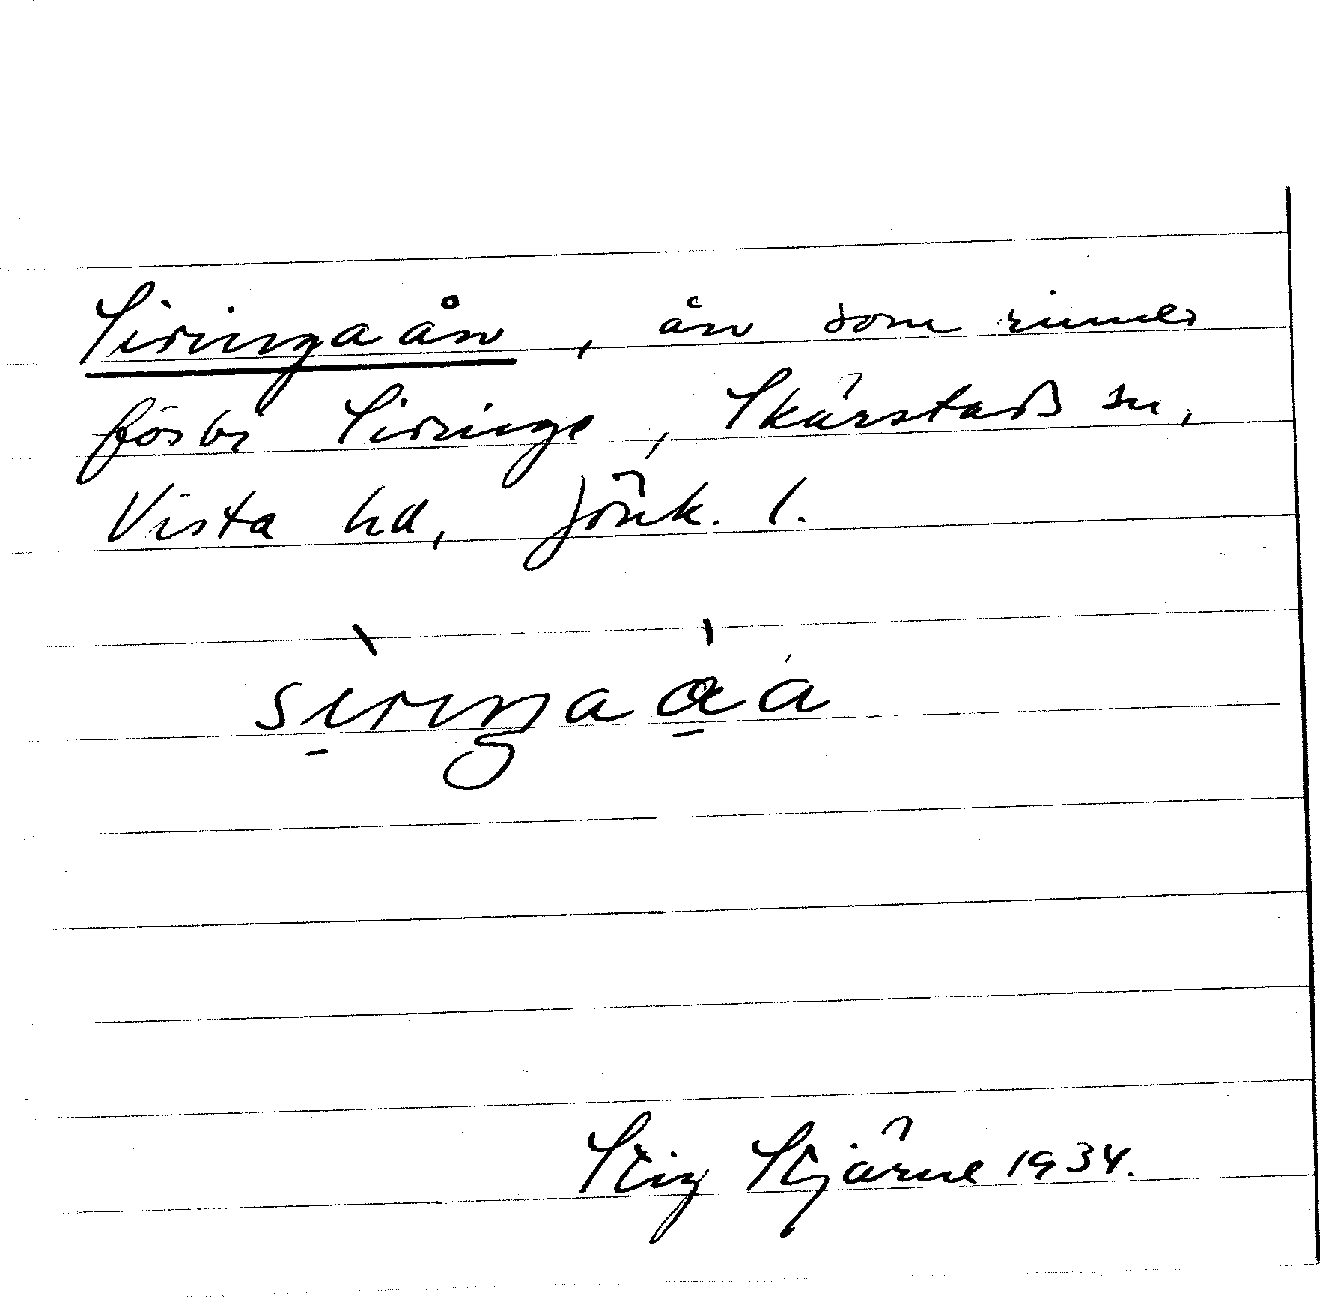 Siringaån, ån som rinner
förbi Siringe, Skärstads sn,
Vista hd, Jönk. l.
sìriŋaåa
Stig Stjärne 1934.